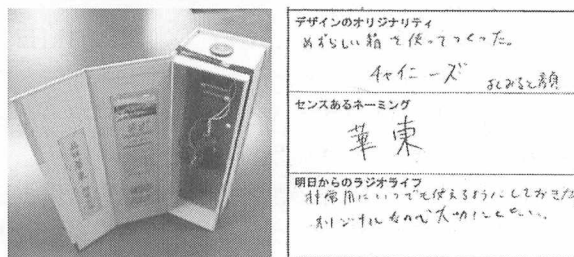 デザインのオリジナリティ
めずらしい箱を使ってつくった。
チャイニーズ
よくみると顔
センスあるネーミング
華東
明日からのラジオライフ
非常用にいつでも使えるようにしておきたい
オリジナルなので大切にしたい。